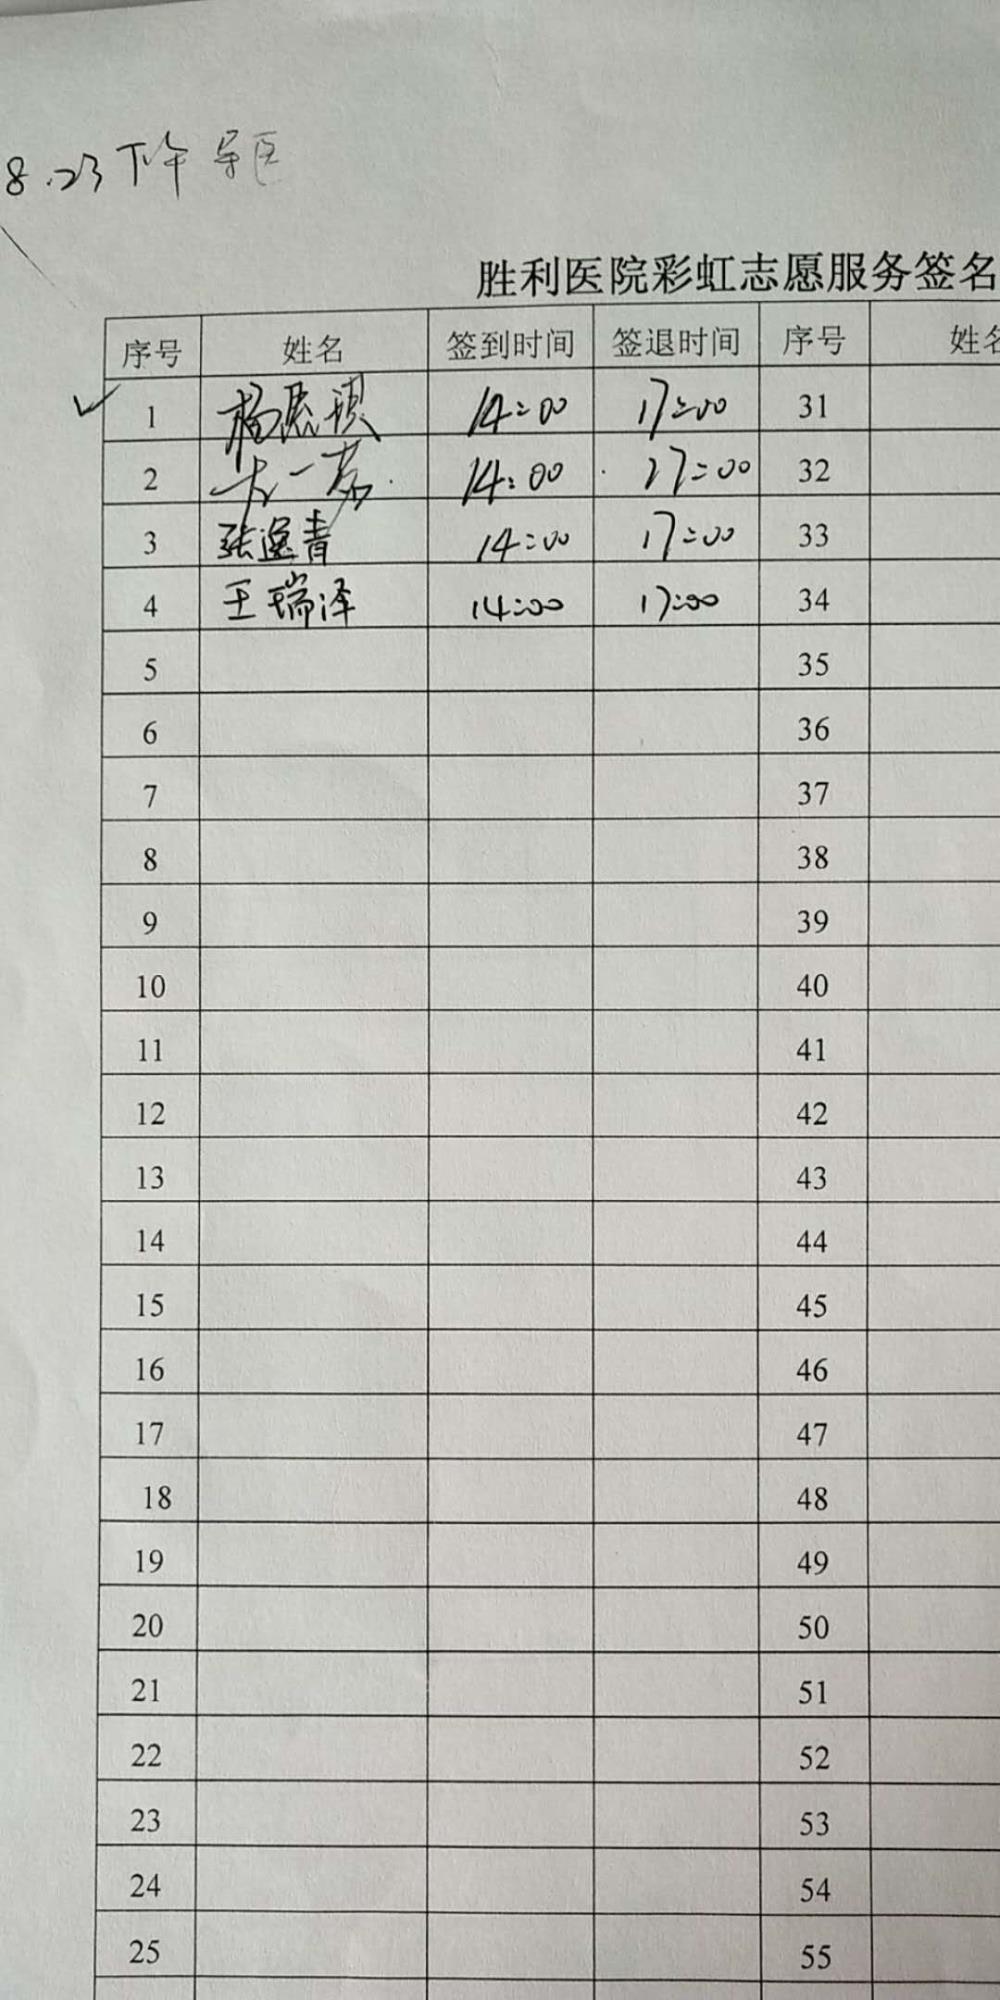 8.23 下午 导医
胜利医院彩虹志愿服务签名
序号 姓名 签到时间 签退时间 序号 姓名
1 杨 琪 14:00 17:00 31
2 一 14:00 17:00 32
3 张逸青 14:00 17:00 33
4 王瑞泽 14:00 17:00 34
5 35
6 36
7 37
8 38
9 39
10 40
11 41
12 42
13 43
14 44
15 45
16 46
17 47
18 48
19 49
20 50
21 51
22 52
23 53
24 54
25 55